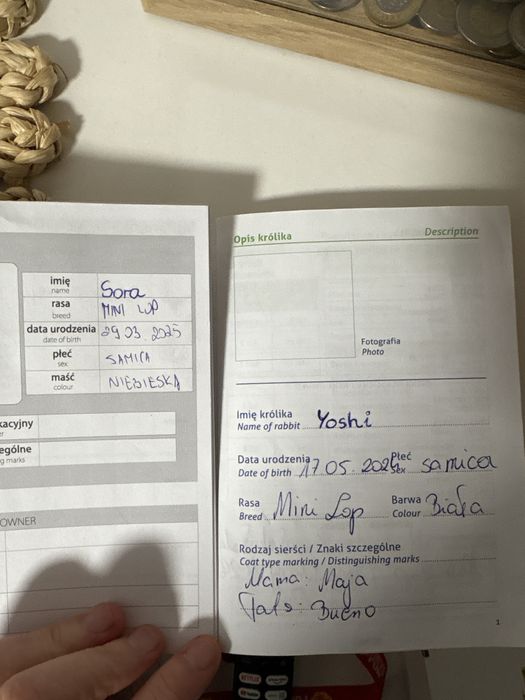 imię
name
Sora
rasa
breed
MINI LOP
data urodzenia
date of birth
29.03.2025
płeć
sex
SAMICA
maść
colour
NIEBIESKA
kacyjny
er
ególne
g marks
OWNER
Opis królika
Description
Fotografia
Photo
Imię królika
Name of rabbit
Yoshi
Data urodzenia
Date of birth
17.05.2024
Płeć
Sex
samica
Rasa
Breed
Mini Lop
Barwa
Colour
Biała
Rodzaj sierści / Znaki szczególne
Coat type marking / Distinguishing marks
Mama: Maja
Tata: Bueno
1
NETFLIX